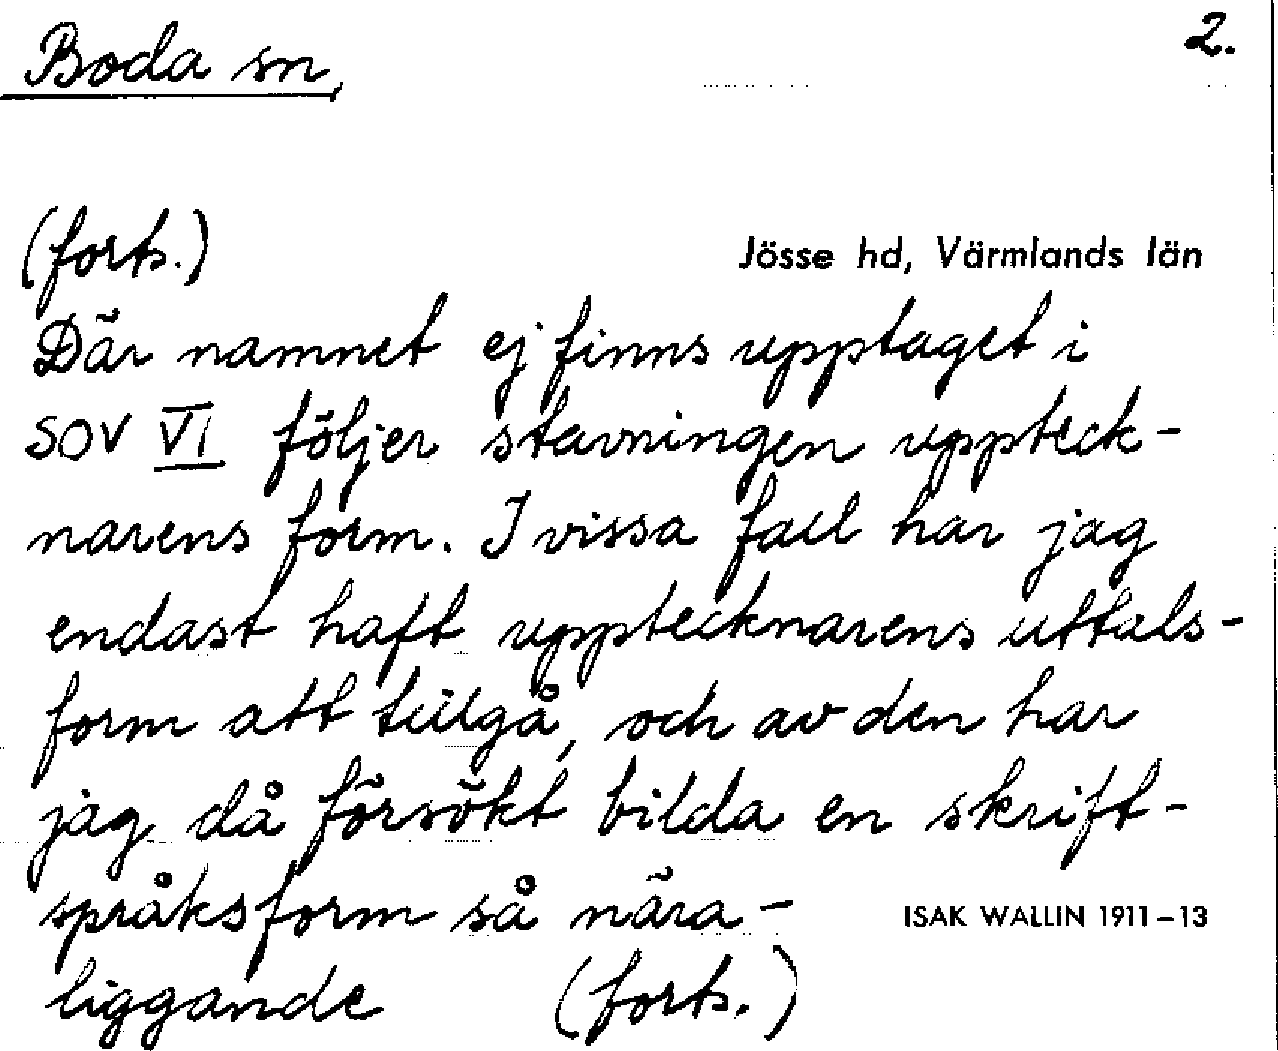 Boda sn,
2.
(forts.)
Jösse hd, Värmlands län
Där namnet ej finns upptaget i
SOV VI följer stavningen uppteck-
narens form. I vissa fall har jag
endast haft upptecknarens uttals-
form att tillgå, och av den har
jag då försökt bilda en skrift-
språksform så nära-
ISAK WALLIN 1911-13
liggande (forts.)